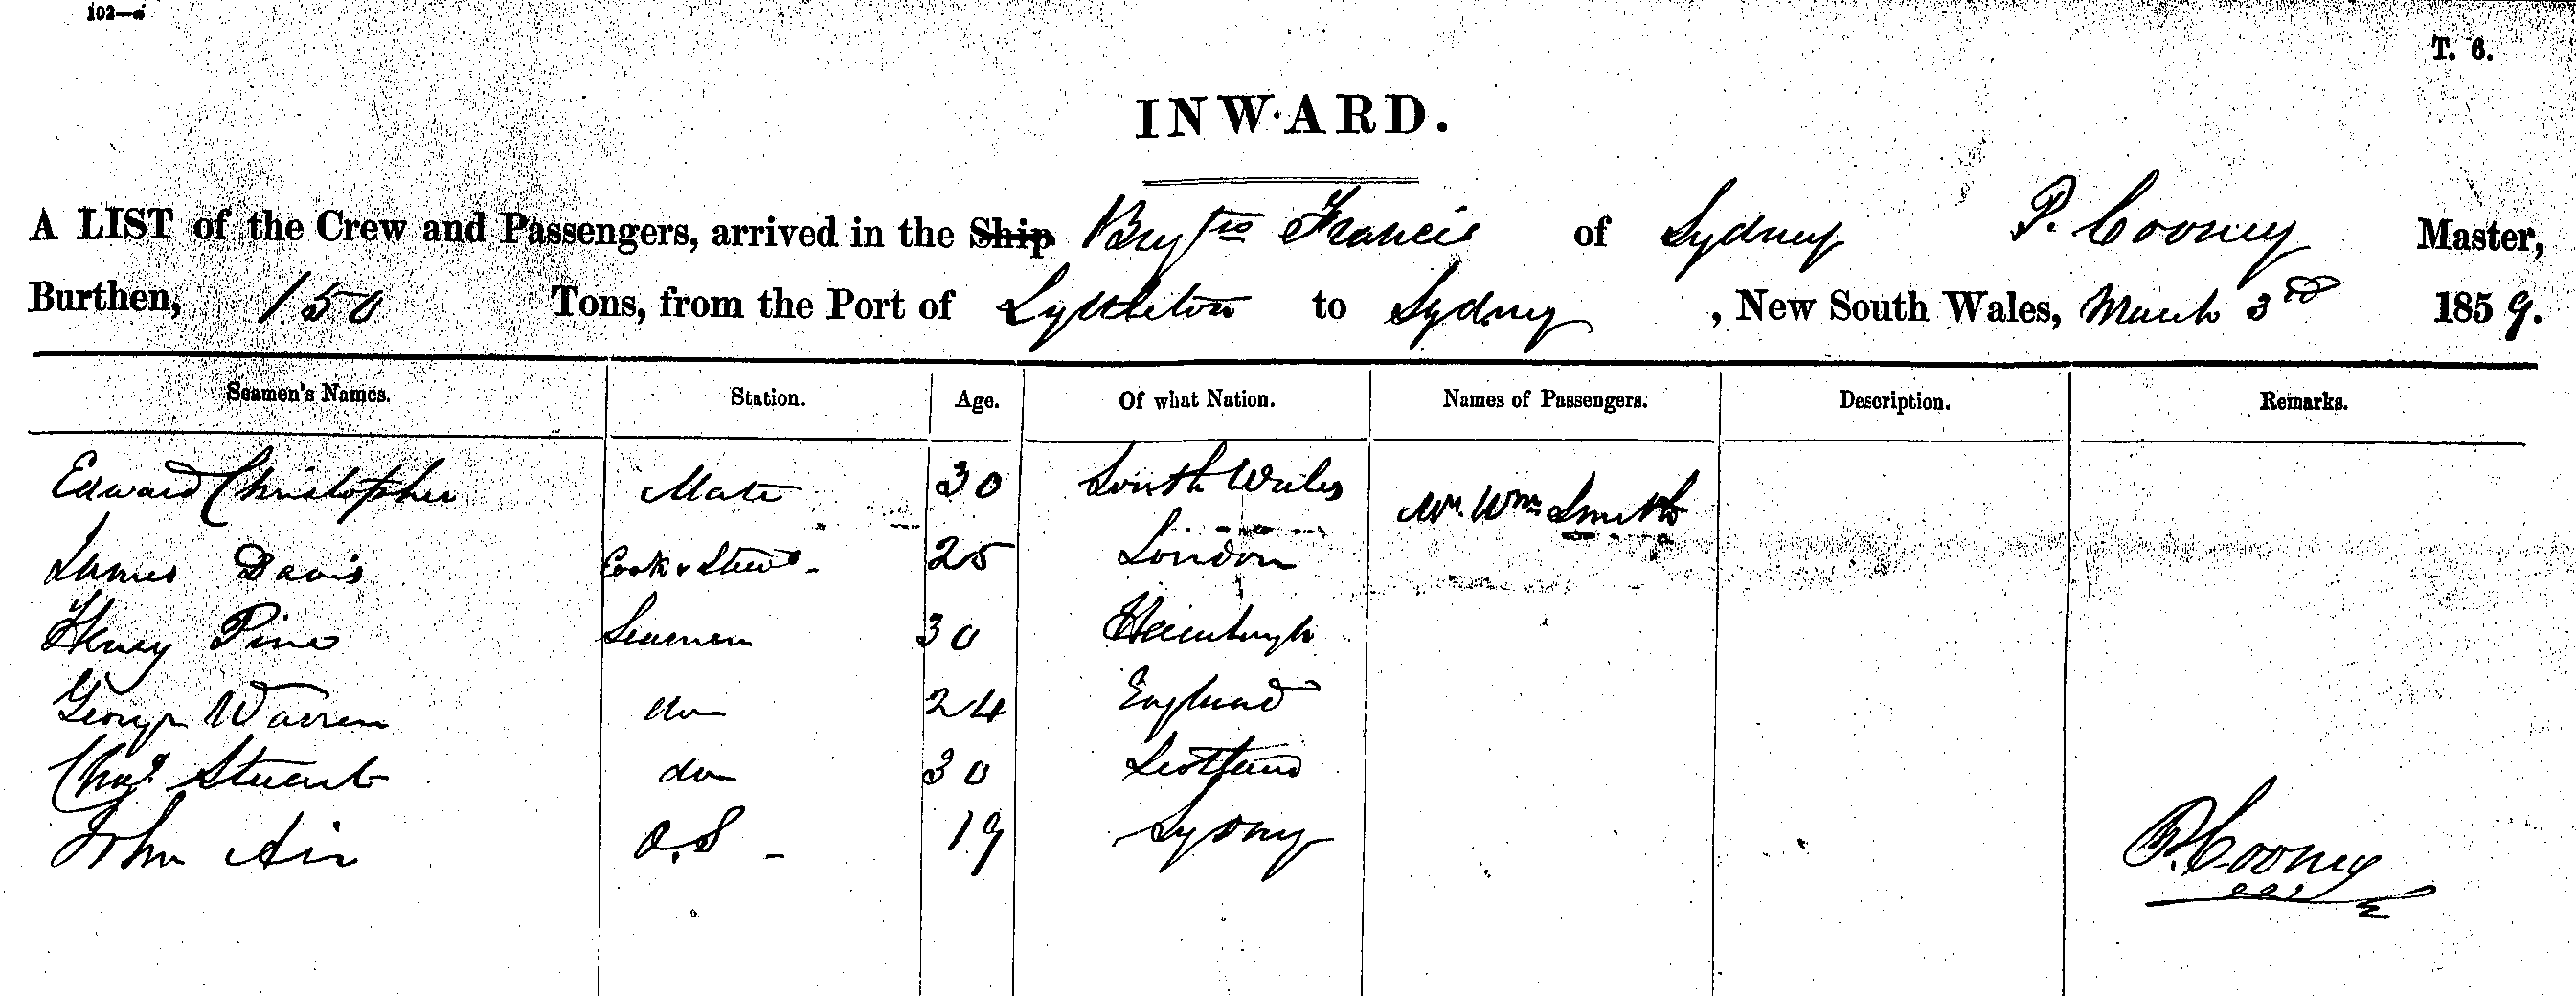 102—a
T. 6.
INWARD.
A LIST of the Crew and Passengers, arrived in the Ship Brigtne Francis of Sydney P. Cooney Master,
Burthen, 150 Tons, from the Port of Lyttleton to Sydney, New South Wales, March 3rd 1859.
Seamen's Names. Station. Age. Of what Nation. Names of Passengers. Description. Remarks.
Edward Christopher Mate 30 South Wales Mr. Wm Smith
James Davis Cook & Stewd 25 London
Henry Pine Seaman 30 
George Warren do 24 England
Chas Stuart do 30 Scotland
John Air O.S 19 Sydney
P. Cooney